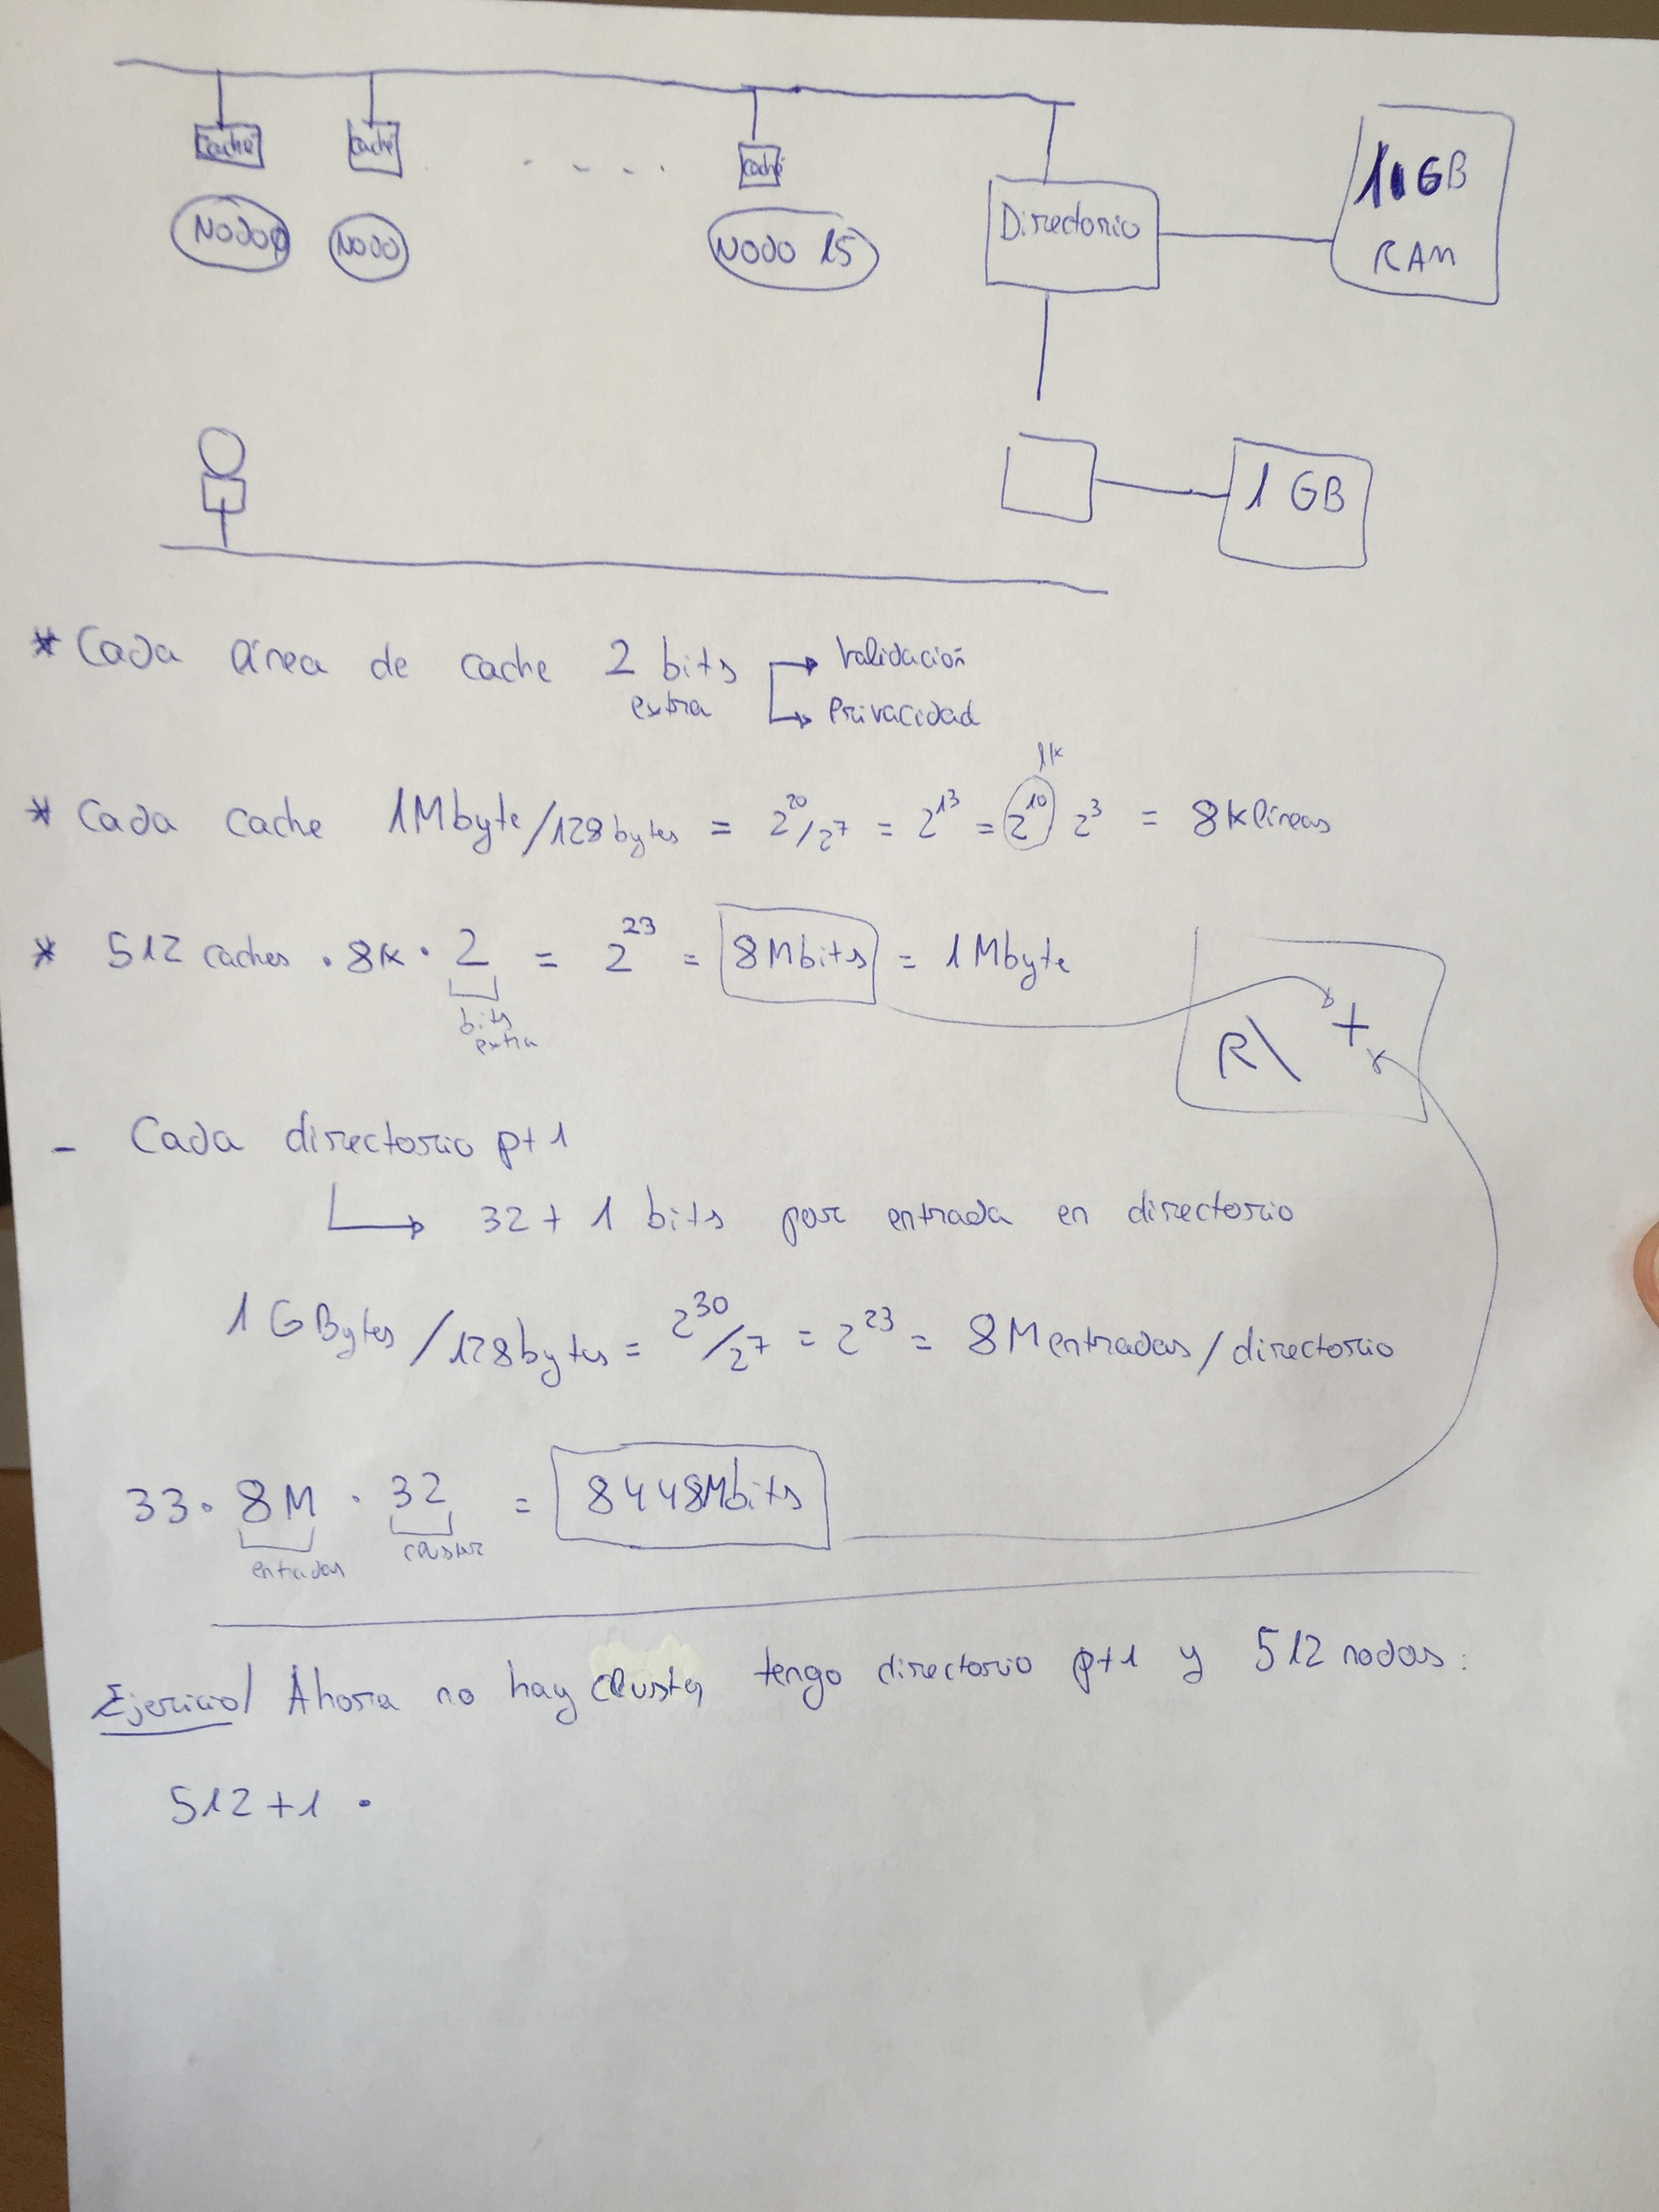 caché caché caché
Nodo 0 Nodo Nodo 15 Directorio 1 GB RAM
1 GB
* Cada línea de cache 2 bits extra → Validación
→ Privacidad
1k
* Cada cache 1Mbyte/128bytes = 2^20/2^7 = 2^13 = 2^10 2^3 = 8k líneas
* 512 caches · 8k · 2 = 2^23 = 8Mbits = 1Mbyte
bits extra
R\ +
- Cada directorio p+1
→ 32 + 1 bits por entrada en directorio
1 GBytes/128bytes = 2^30/2^7 = 2^23 = 8M entradas/directorio
33 · 8M · 32 = 8448Mbits
entradas cluster
Ejercicio/ Ahora no hay cluster, tengo directorio p+1 y 512 nodos:
512+1 ·